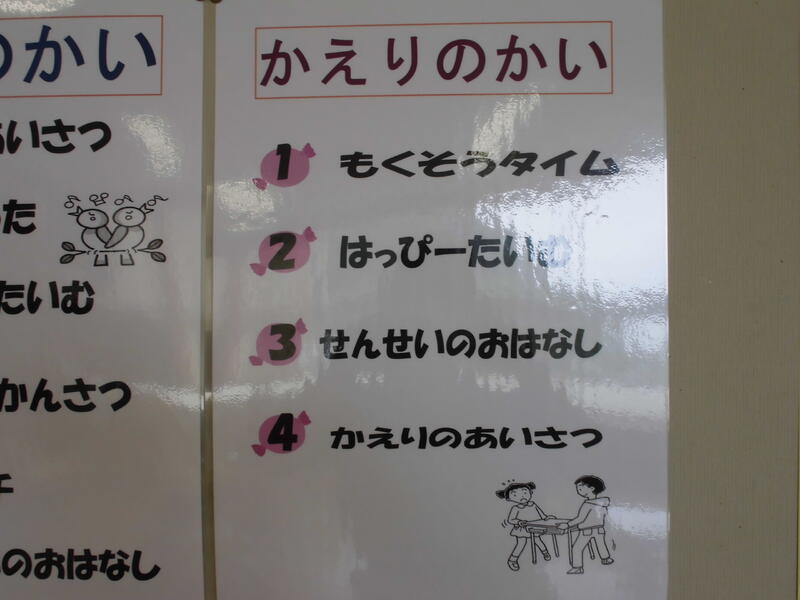 のかい
あいさつ
た
たいむ
かんさつ
のおはなし
かえりのかい
1 もくそうタイム
2 はっぴーたいむ
3 せんせいのおはなし
4 かえりのあいさつ